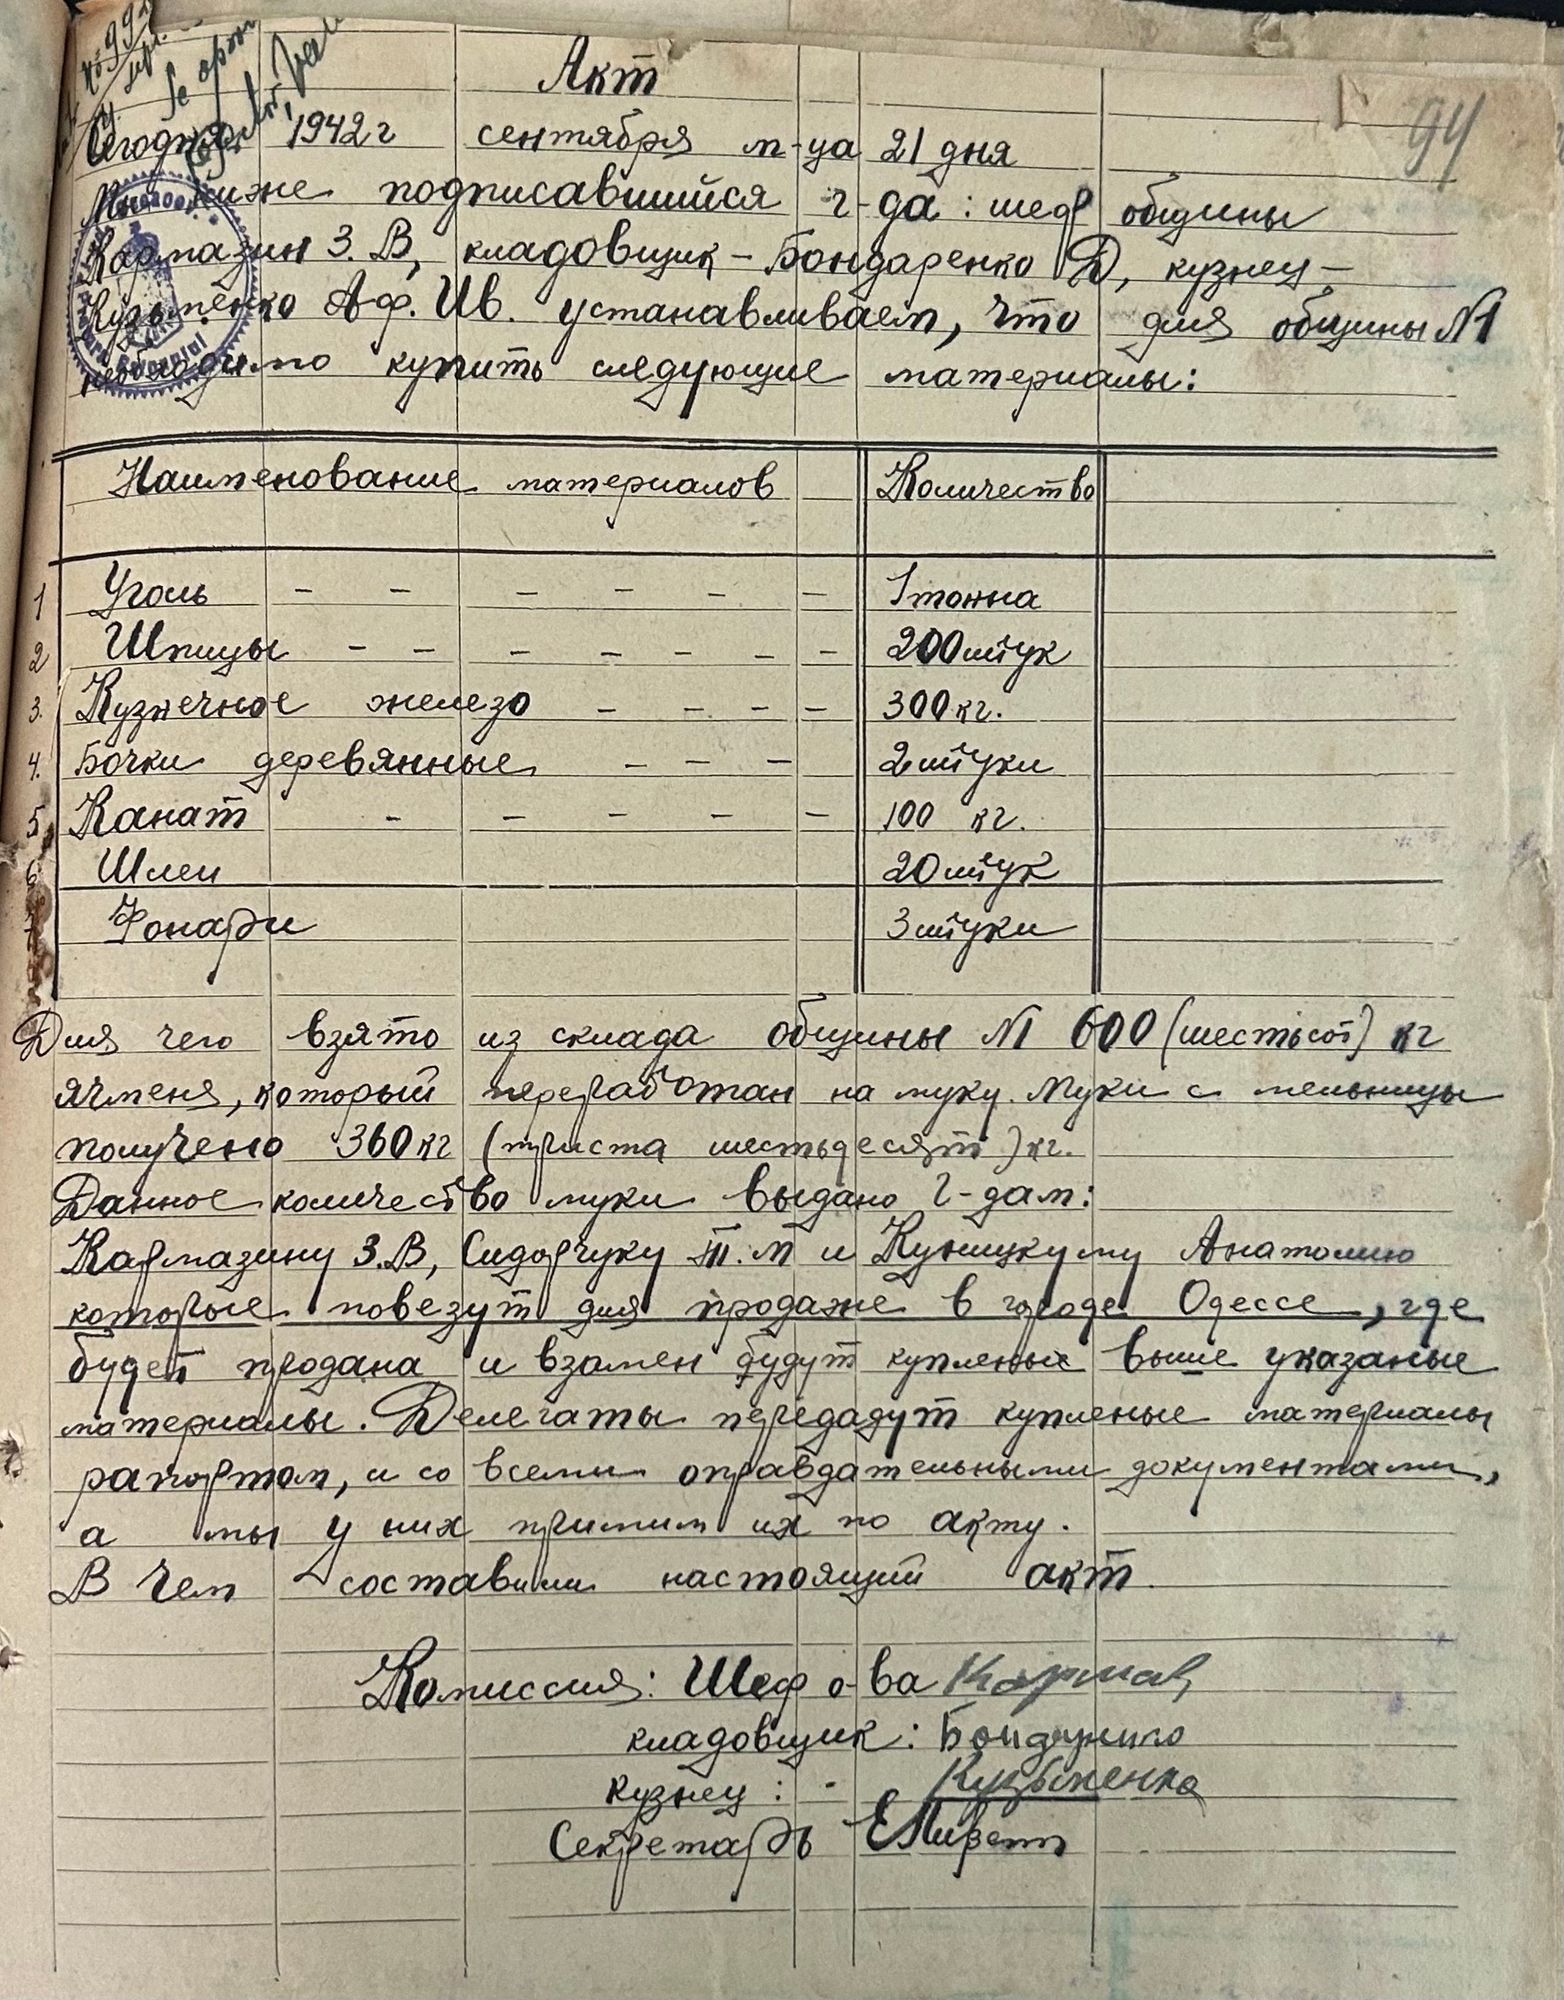 94
Акт
Сегодня 1942 г сентября м-ца 21 дня
Мы ниже подписавшийся г-да: шеф общины
Кармазин З. В, кладовщик – Бондаренко Д, кузнец –
Кузьменко Аф. Ив. устанавливаем, что для общины №1
необходимо купить следующие материалы:
Наименование материалов Количество
1 Уголь – – – – – – – 1 тонна
2 Шпицы – – – – – – – 200 штук
3. Кузнечное железо – – – – 300 кг.
4. Бочки деревянные – – – 2 штуки
5 Канат – – – – – 100 кг.
6 Шлеи 20 штук
7 Фонари 3 штуки
Для чего взято из склада общины №1 600 (шестьсот) кг
ячменя, который переработан на муку. Муки с мельницы
получено 360 кг (триста шестьдесят) кг.
Данное количество муки выдано г-дам:
Кармазину З.В, Сидорчуку Т. М и Куницкуму Анатолию
которые повезут для продаже в городе Одессе, где
будет продана и взамен будут купленые выше указаные
материалы. Делегаты передадут купленые материалы
рапортом, и со всеми оправдательными документами,
а мы у них примим их по акту.
В чем составили настоящий акт.
Комиссия: Шеф о-ва
кладовщик: Бондаренко
кузнец: - Кузьменко
Секретарь